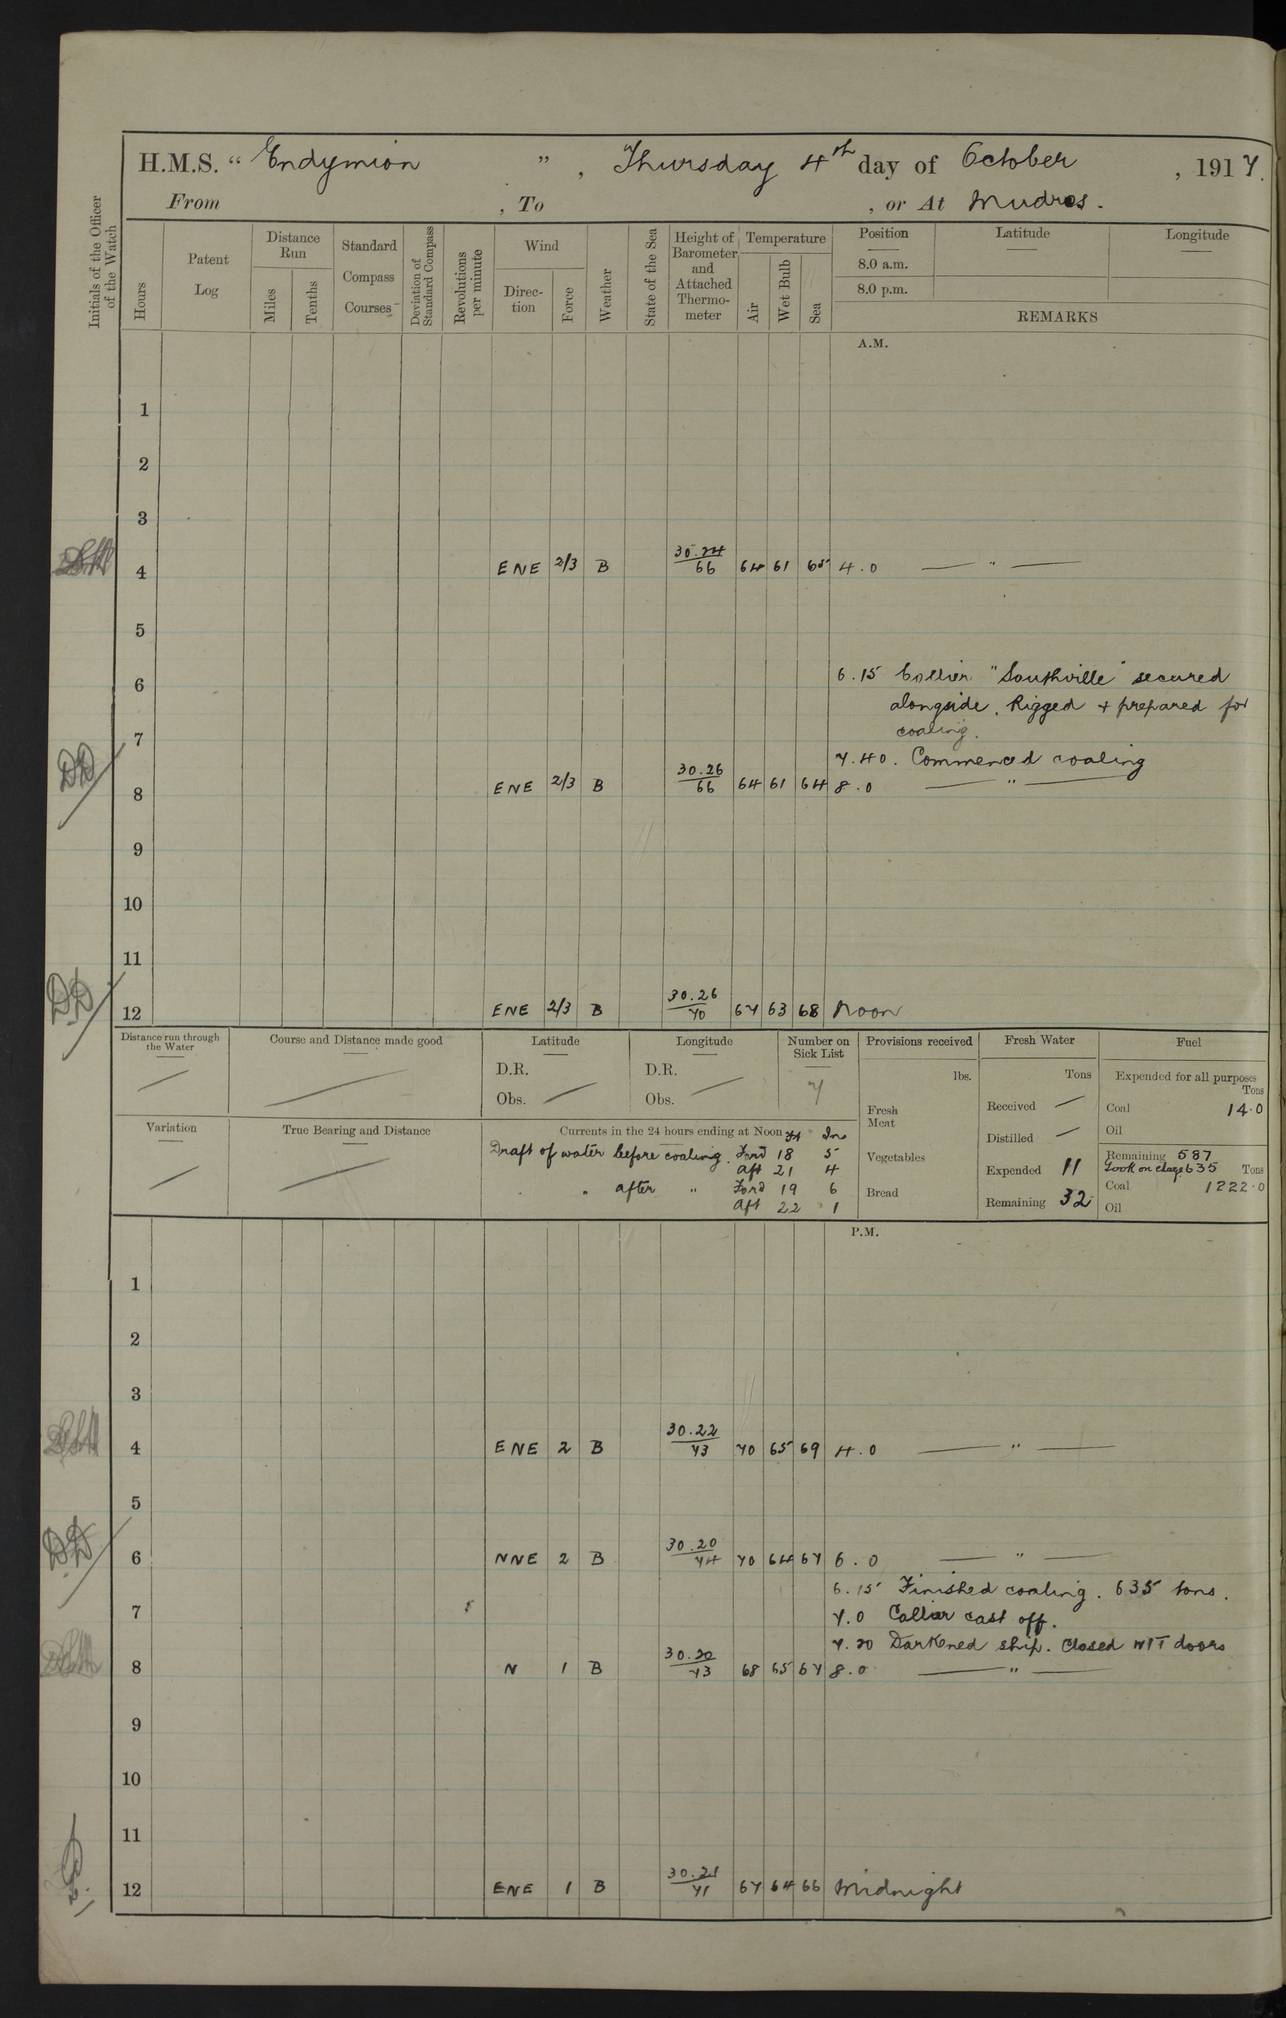 H.M.S. “ Endymion ”, Thursday 4th day of October, 1917.
From , To , or At Mudros.
Initials of the Officer of the Watch
Hours
Patent Log
Distance Run
Miles
Tenths
Standard Compass Courses
Deviation of Standard Compass
Revolutions per minute
Wind
Direction
Force
Weather
State of the Sea
Height of Barometer and Attached Thermometer
Temperature
Air
Wet Bulb
Sea
Position Latitude Longitude
8.0 a.m.
8.0 p.m.
REMARKS
A.M.
1
2
3
4 ENE 2/3 B 30.24/66 64 61 65 4.0 — " —
5
6 6.15 Collier "Southville" secured
alongside. Rigged + prepared for
coaling.
7
7.40. Commenced coaling
DD 8 ENE 2/3 B 30.26/66 64 61 64 8.0 — " —
9
10
11
DD 12 ENE 2/3 B 30.26/70 67 63 68 Noon
Distance run through the Water
Course and Distance made good
Latitude
D.R.
Obs.
Longitude
D.R.
Obs.
Number on Sick List
7
Provisions received
lbs.
Fresh Meat
Vegetables
Bread
Fresh Water
Tons
Received —
Distilled —
Expended 11
Remaining 32
Fuel
Expended for all purposes
Tons
Coal 14.0
Oil
Remaining 587
Took on charge 635 Tons
Coal 1222.0
Oil
Variation
True Bearing and Distance
Currents in the 24 hours ending at Noon
Ft In
Draft of water before coaling. Ford 18 5
Aft 21 4
" after " Ford 19 6
Aft 22 1
P.M.
1
2
3
4 ENE 2 B 30.22/73 70 65 69 4.0 — " —
5
DD 6 NNE 2 B 30.20/74 70 64 67 6.0 — " —
6.15 Finished coaling. 635 tons.
7 7.0 Collier cast off.
7.20 Darkened ship. Closed W/T doors
8 N 1 B 30.20/73 68 65 67 8.0 — " —
9
10
11
12 ENE 1 B 30.21/71 67 64 66 Midnight